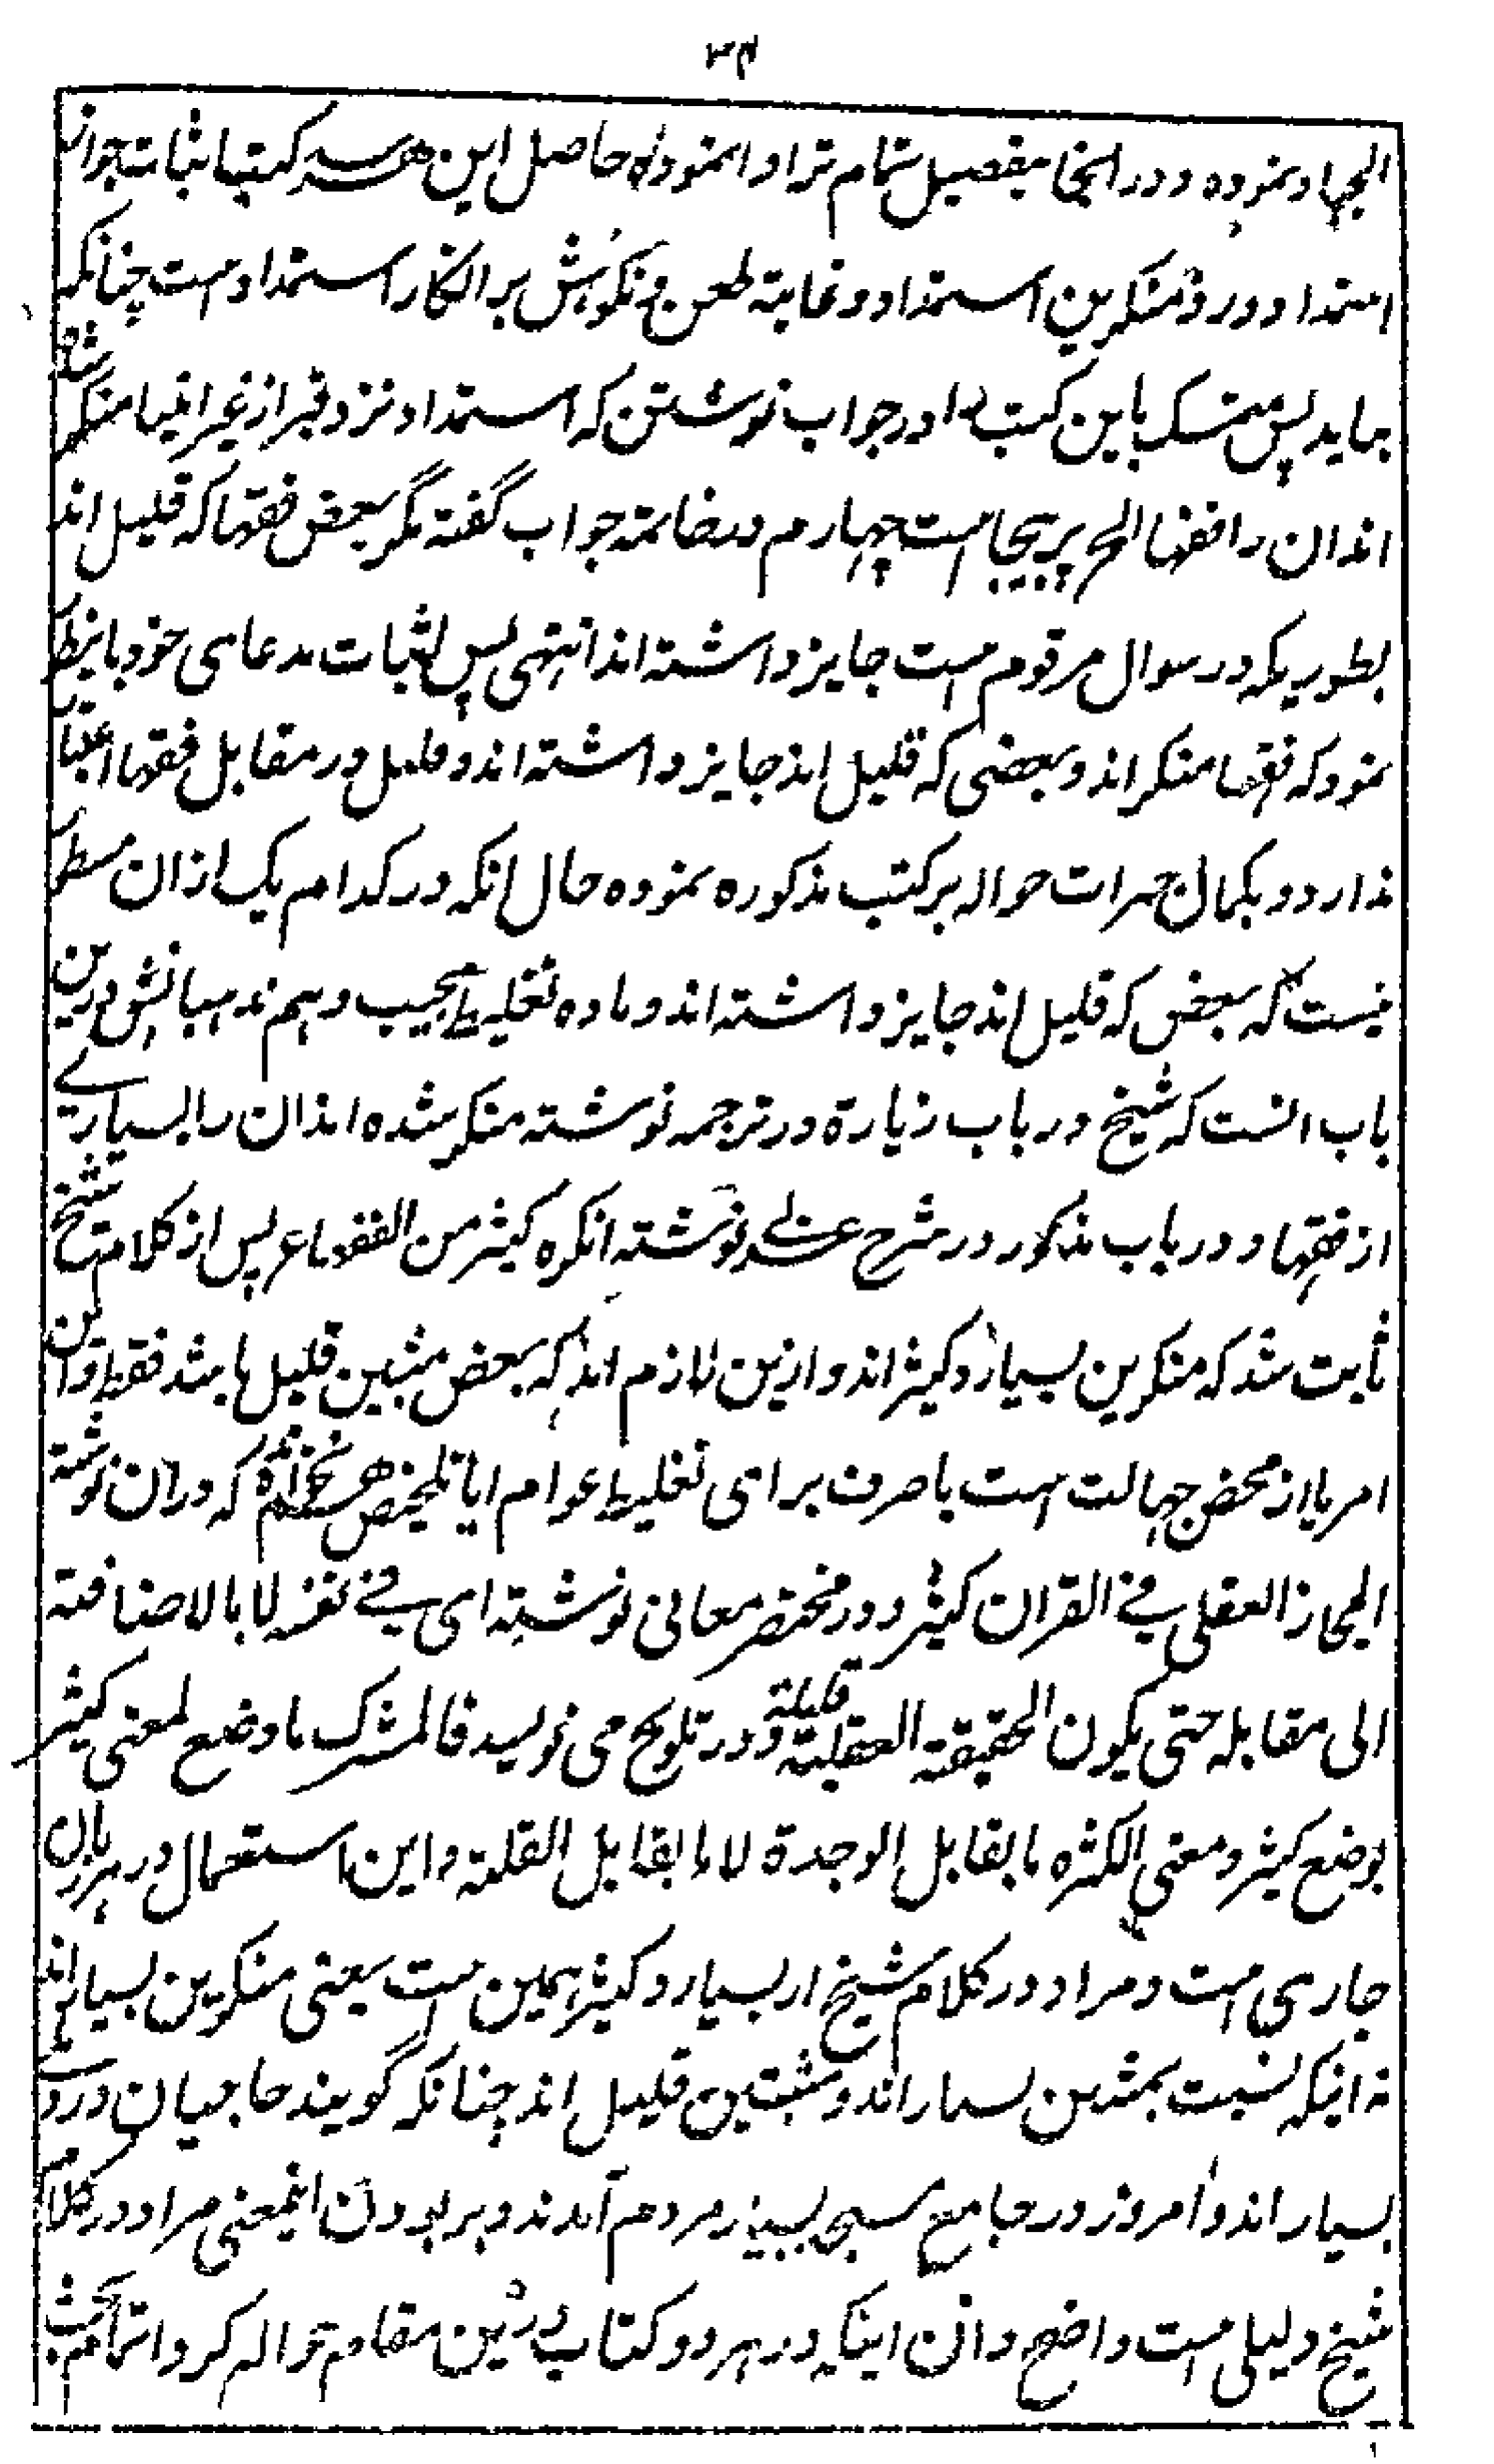 ۳۴
الجهاد نموده و در اینجا بتفصیل تمام تر ادا نموده حاصل این هر سه کتب اثبات جواز
استمداد و رد منکرین استمداد و غایة طعن و نکوهش بر انکار استمداد است چنانکه
بباید پس متمسک باین کتب در جواب نوشتن که استمداد نزد قبر از غیر انبیا منکر شده
اند ان را فقها الخ پر بیجا است چهارم در خاتمه جواب گفته مگر بعض فقها که قلیل اند
بطوریکه در سوال مرقوم است جایز داشته اند انتهی پس اثبات مدعای خود باینطور
نمود که فقها منکر اند و بعضی که قلیل اند جایز داشته اند و قلیل در مقابل فقها اعتبار
ندارد و بکمال جرات حواله بر کتب مذکوره نموده حال انکه در کدام یک ازان مسطور
نیست که بعض که قلیل اند جایز داشته اند و ماده تغلیط مجیب و هم مذهبانش درین
باب انست که شیخ در باب زیارة در ترجمه نوشته منکر شده اند ان را بسیارے
از فقها و در باب مذکور در شرح عربی نوشته انکره کثیر من الفقهاء پس از کلام شیخ
ثابت شد که منکرین بسیار و کثیر اند و ازین لازم امد که بعض مثبتین قلیل باشد فقط و این
امر یا از محض جهالت است یا صرف برای تغلیط عوام ایا تلخیص هم نخوانده که دران نوشته
المجاز العقلی فی القران کثیر و در مختصر معانی نوشته ای فی نفسه لا بالاضافة
الی مقابله حتی یکون الحقیقة العقلیة قلیلة و در تلویح می نویسد فالمشترک ما وضع لمعنی کثیر
بوضع کثیر و معنی الکثره ما یقابل الوحدة لا ما یقابل القلة و این استعمال در هر زبان
جاری است و مراد در کلام شیخ از بسیار و کثیر همین است یعنی منکرین بسیار اند
نه اینکه نسبت بمثبتین بسیار اند و مثبتین قلیل اند چنانکه گویند حاجیان درو
بسیار اند و امروز در جامع مسجد بسیار مردم آمدند و بر بودن اینمعنی مراد در کلام
شیخ دلیلی است واضح و ان اینکه در هر دو کتاب درین مقام حواله کرد اتمام بحث